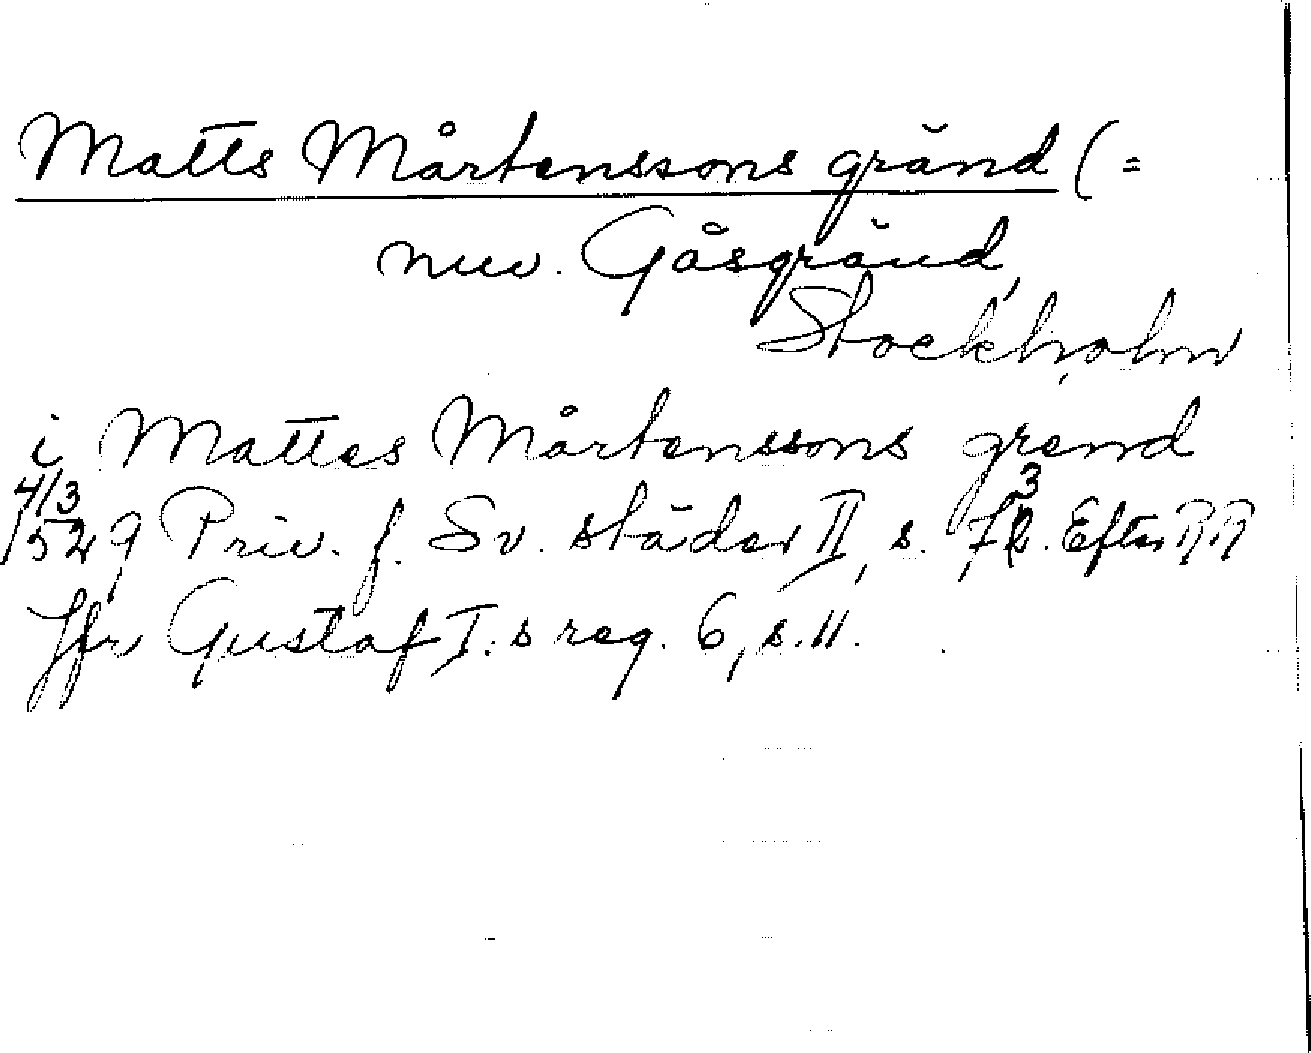 Matts Mårtenssons gränd (=
nuv. Gåsgränd,
Stockholm
i Mattes Mårtenssons grend
4/3
1529 Priv. f. Sv. städer II, s. 73. Efter RR
Jfr Gustaf I:s reg. 6, s. 11.